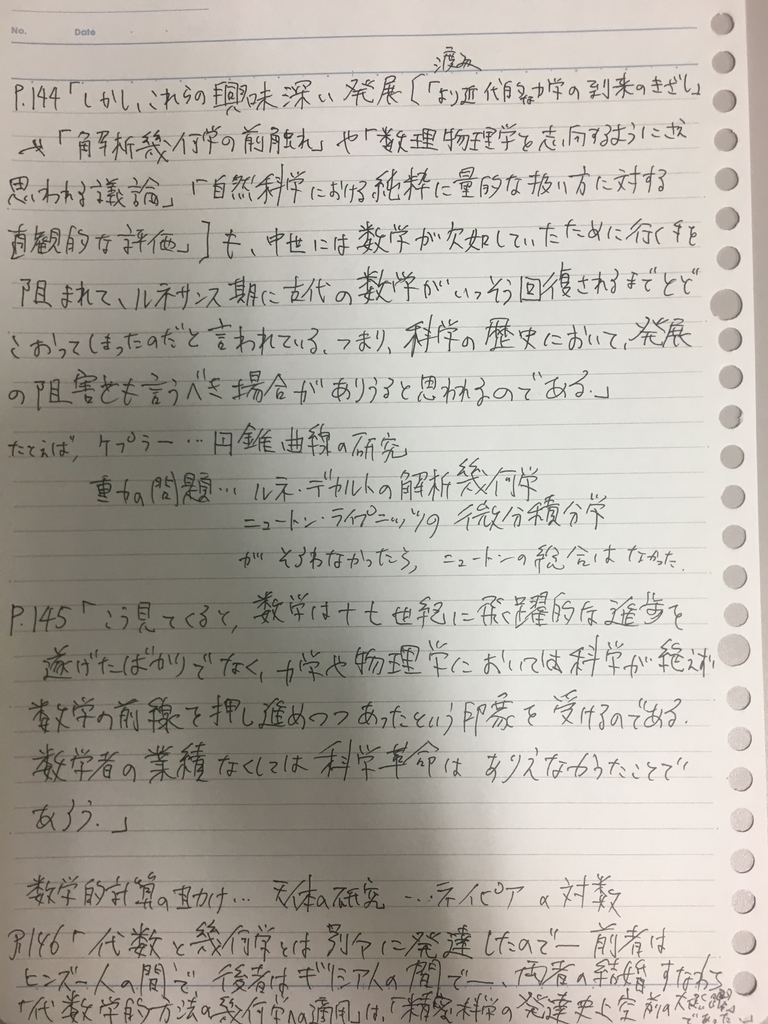 No.　Date
渡辺
P.144「しかし、これらの興味深い発展〔「より近代的な力学の到来のきざし」
や「解析幾何学の前触れ」や「数理物理学を志向するようにさえ
思われる議論」「自然科学における純粋に量的な扱い方に対する
直観的な評価」〕も、中世には数学が欠如していたために行く手を
阻まれて、ルネサンス期に古代の数学がいっそう回復されるまでとど
こおってしまったのだと言われている、つまり、科学の歴史において、発展
の阻害とも言うべき場合がありうると思われるのである.」
たとえば, ケプラー…円錐曲線の研究
重力の問題… ルネ・デカルトの解析幾何学
ニュートン・ライプニッツの 微分積分学
がそろわなかったら, ニュートンの総合はなかった.
P.145「こう見てくると, 数学は十七世紀に飛躍的な進歩を
遂げたばかりでなく, 力学や物理学においては科学が絶えず
数学の前線を押し進めつつあったという印象を受けるのである.
数学者の業績なくしては科学革命はありえなかったことで
あろう.」
数学的計算の助け… 天体の研究 …ネイピアの対数
P.146「代数と幾何学とは別々に発達したので― 前者は
ヒンズー人の間で, 後者はギリシア人の間で―, 両者の結婚すなわち
「代数学的方法の幾何学への適用」は,「精密科学の発達史上空前の大飛躍
であった」